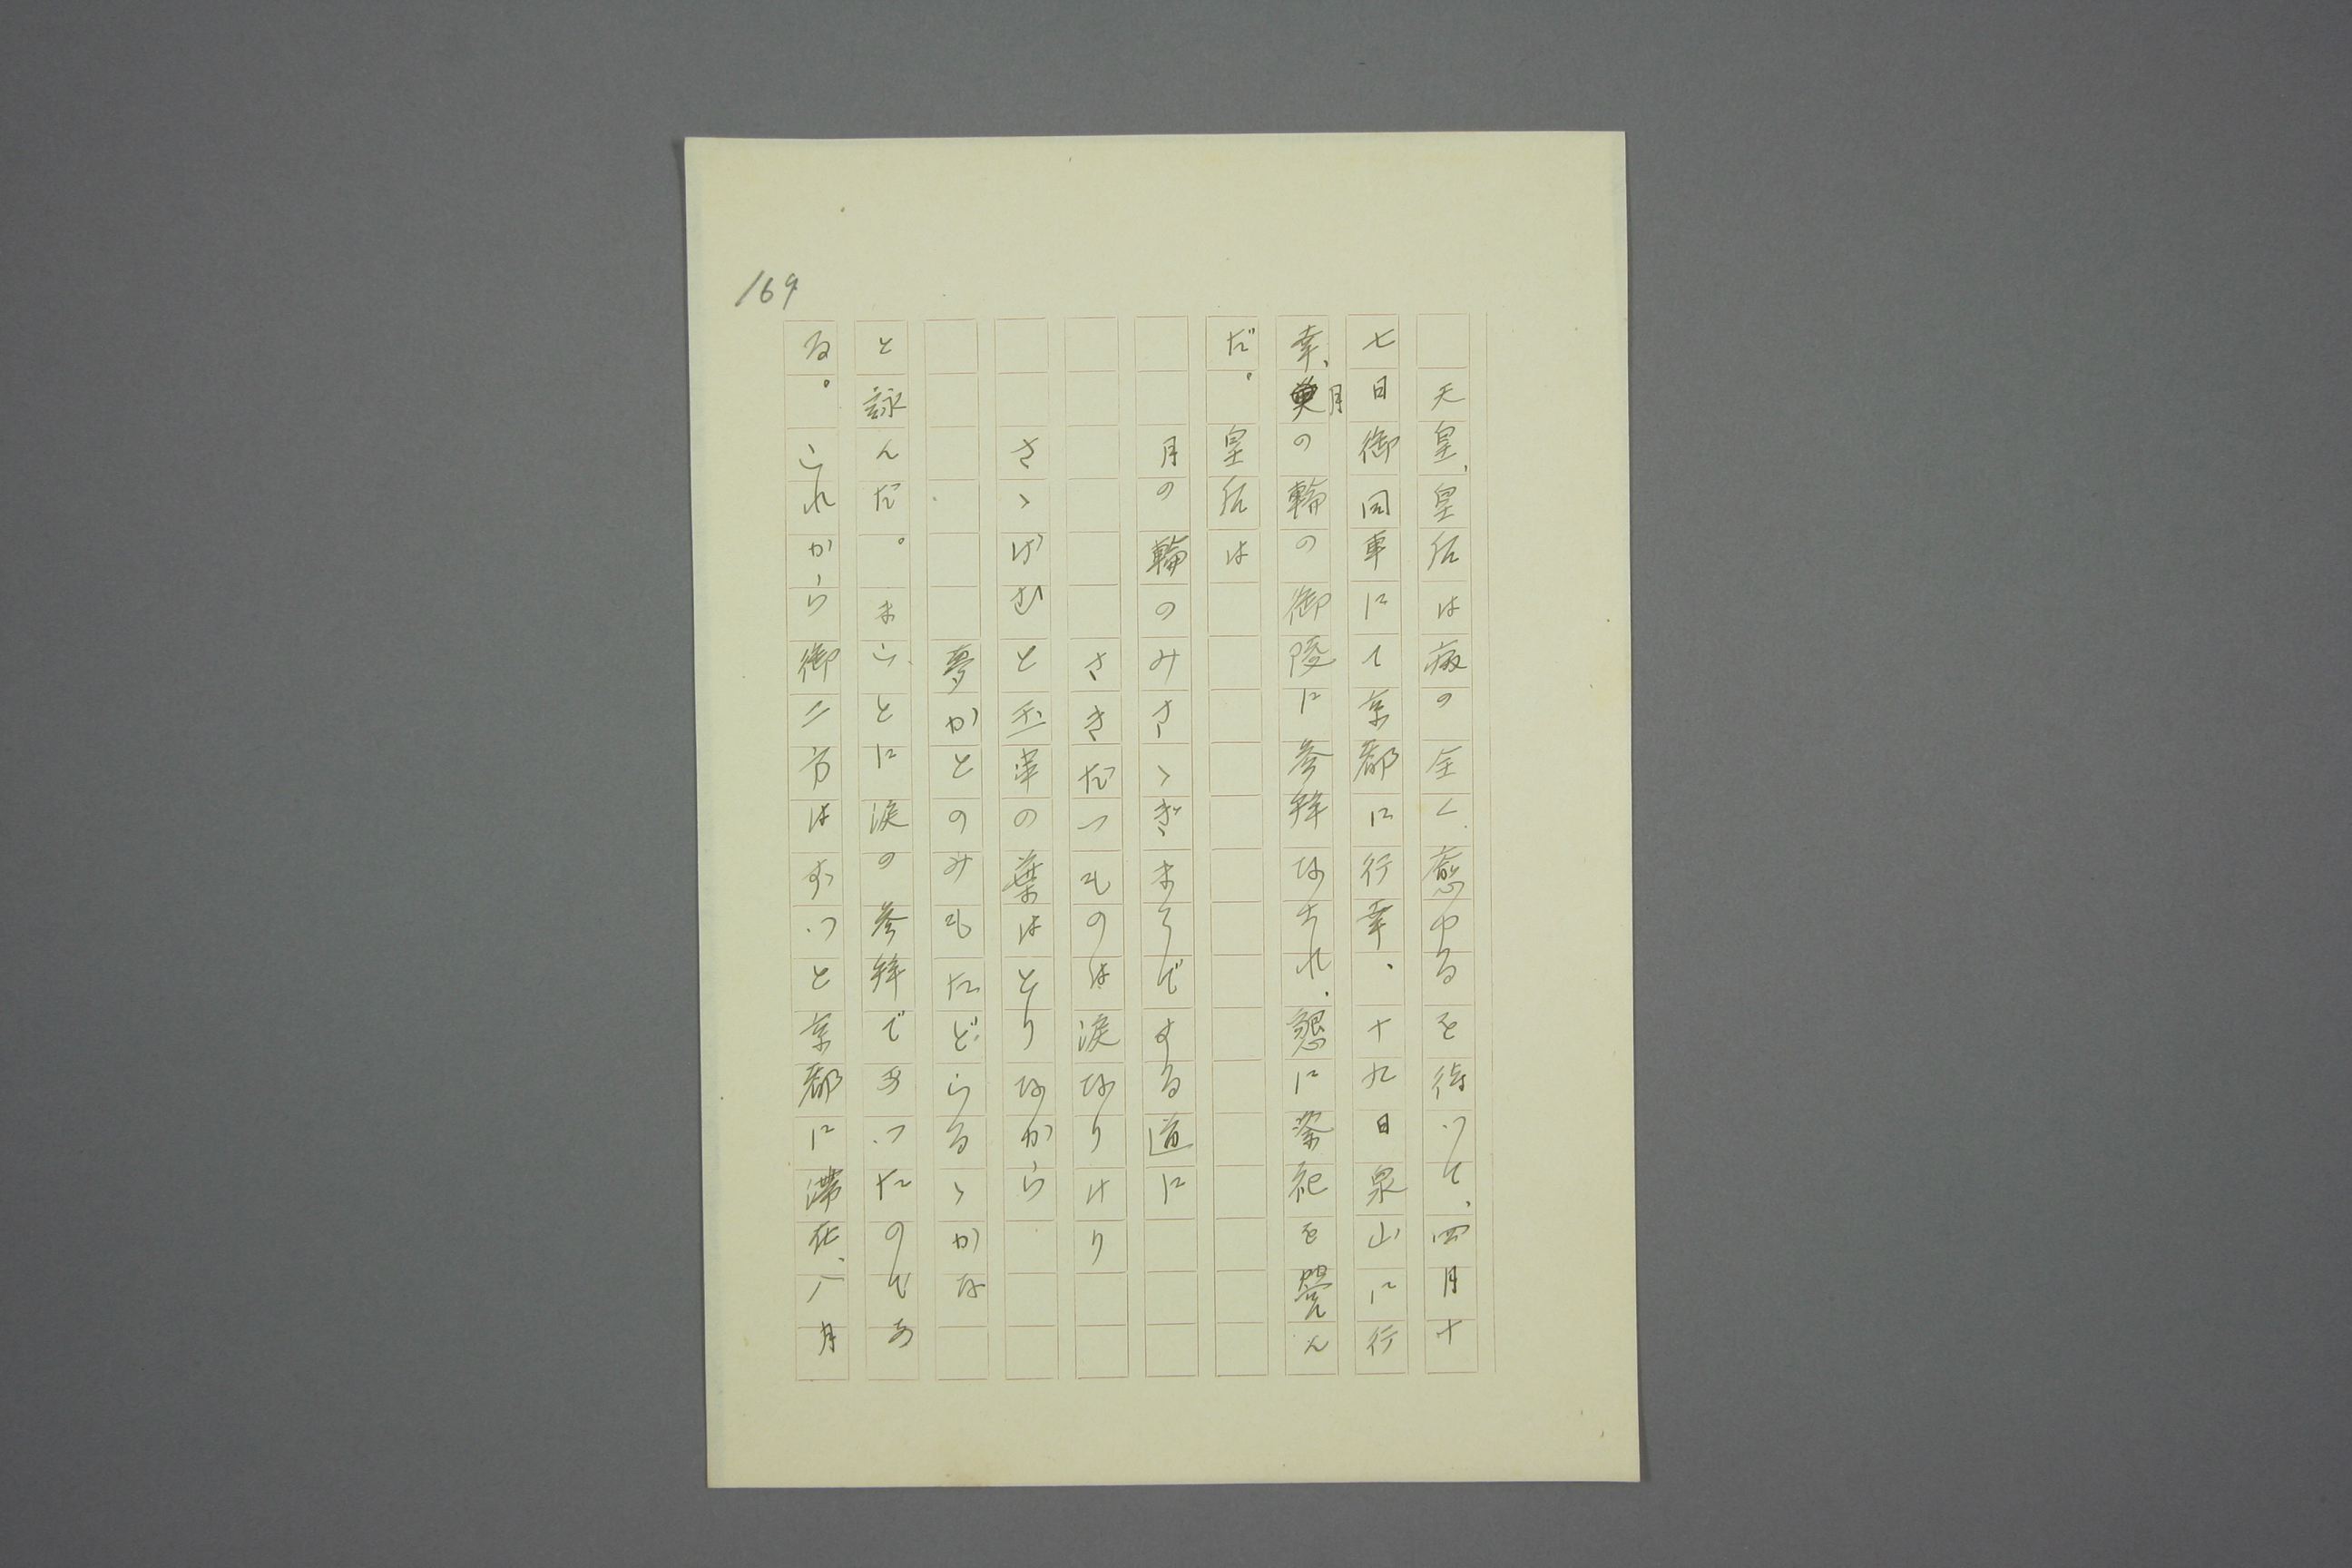 169
天皇、皇后は病の全く癒ゆるを待つて、四月十
七日御同車にて京都に行幸、十九日泉山に行
幸、月の輪の御陵に参拝なされ、懇に祭祀を營ん
だ。皇后は
月の輪のみさゝぎまうでする道に
さきだつものは涙なりけり
さゝげむと玉串の葉はとりながら
夢かとのみもたどらるゝかな
と詠んだ。まことに涙の参拝であつたのであ
る。これから御二方はずつと京都に滞在、八月